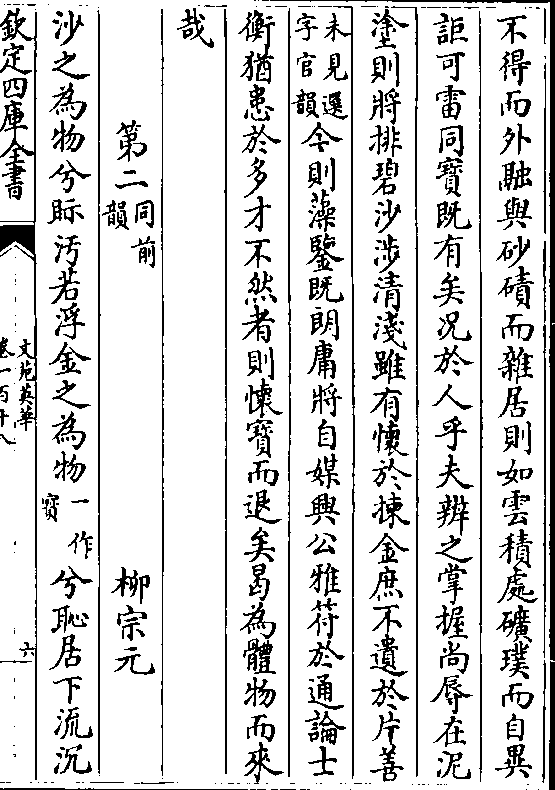 不得而外融與砂磧而雜居則如雲積處礦璞而自異
詎可雷同寶既有矣况於人乎夫辨之掌握尚辱在泥
塗則將排碧沙涉清淺雖有懷於揀金庶不遺於片善
未見選
字官韻
今則藻鑒既朗庸將自媒興公雅符於通論士
衡猶患於多才不然者則懷寶而退矣曷為體物而來
哉
第二
同前
韻
柳宗元
沙之為物兮眎汚若浮金之為物
一作
寳
兮恥居下流沉
欽定四庫全書
文苑英華
卷一百十八
六